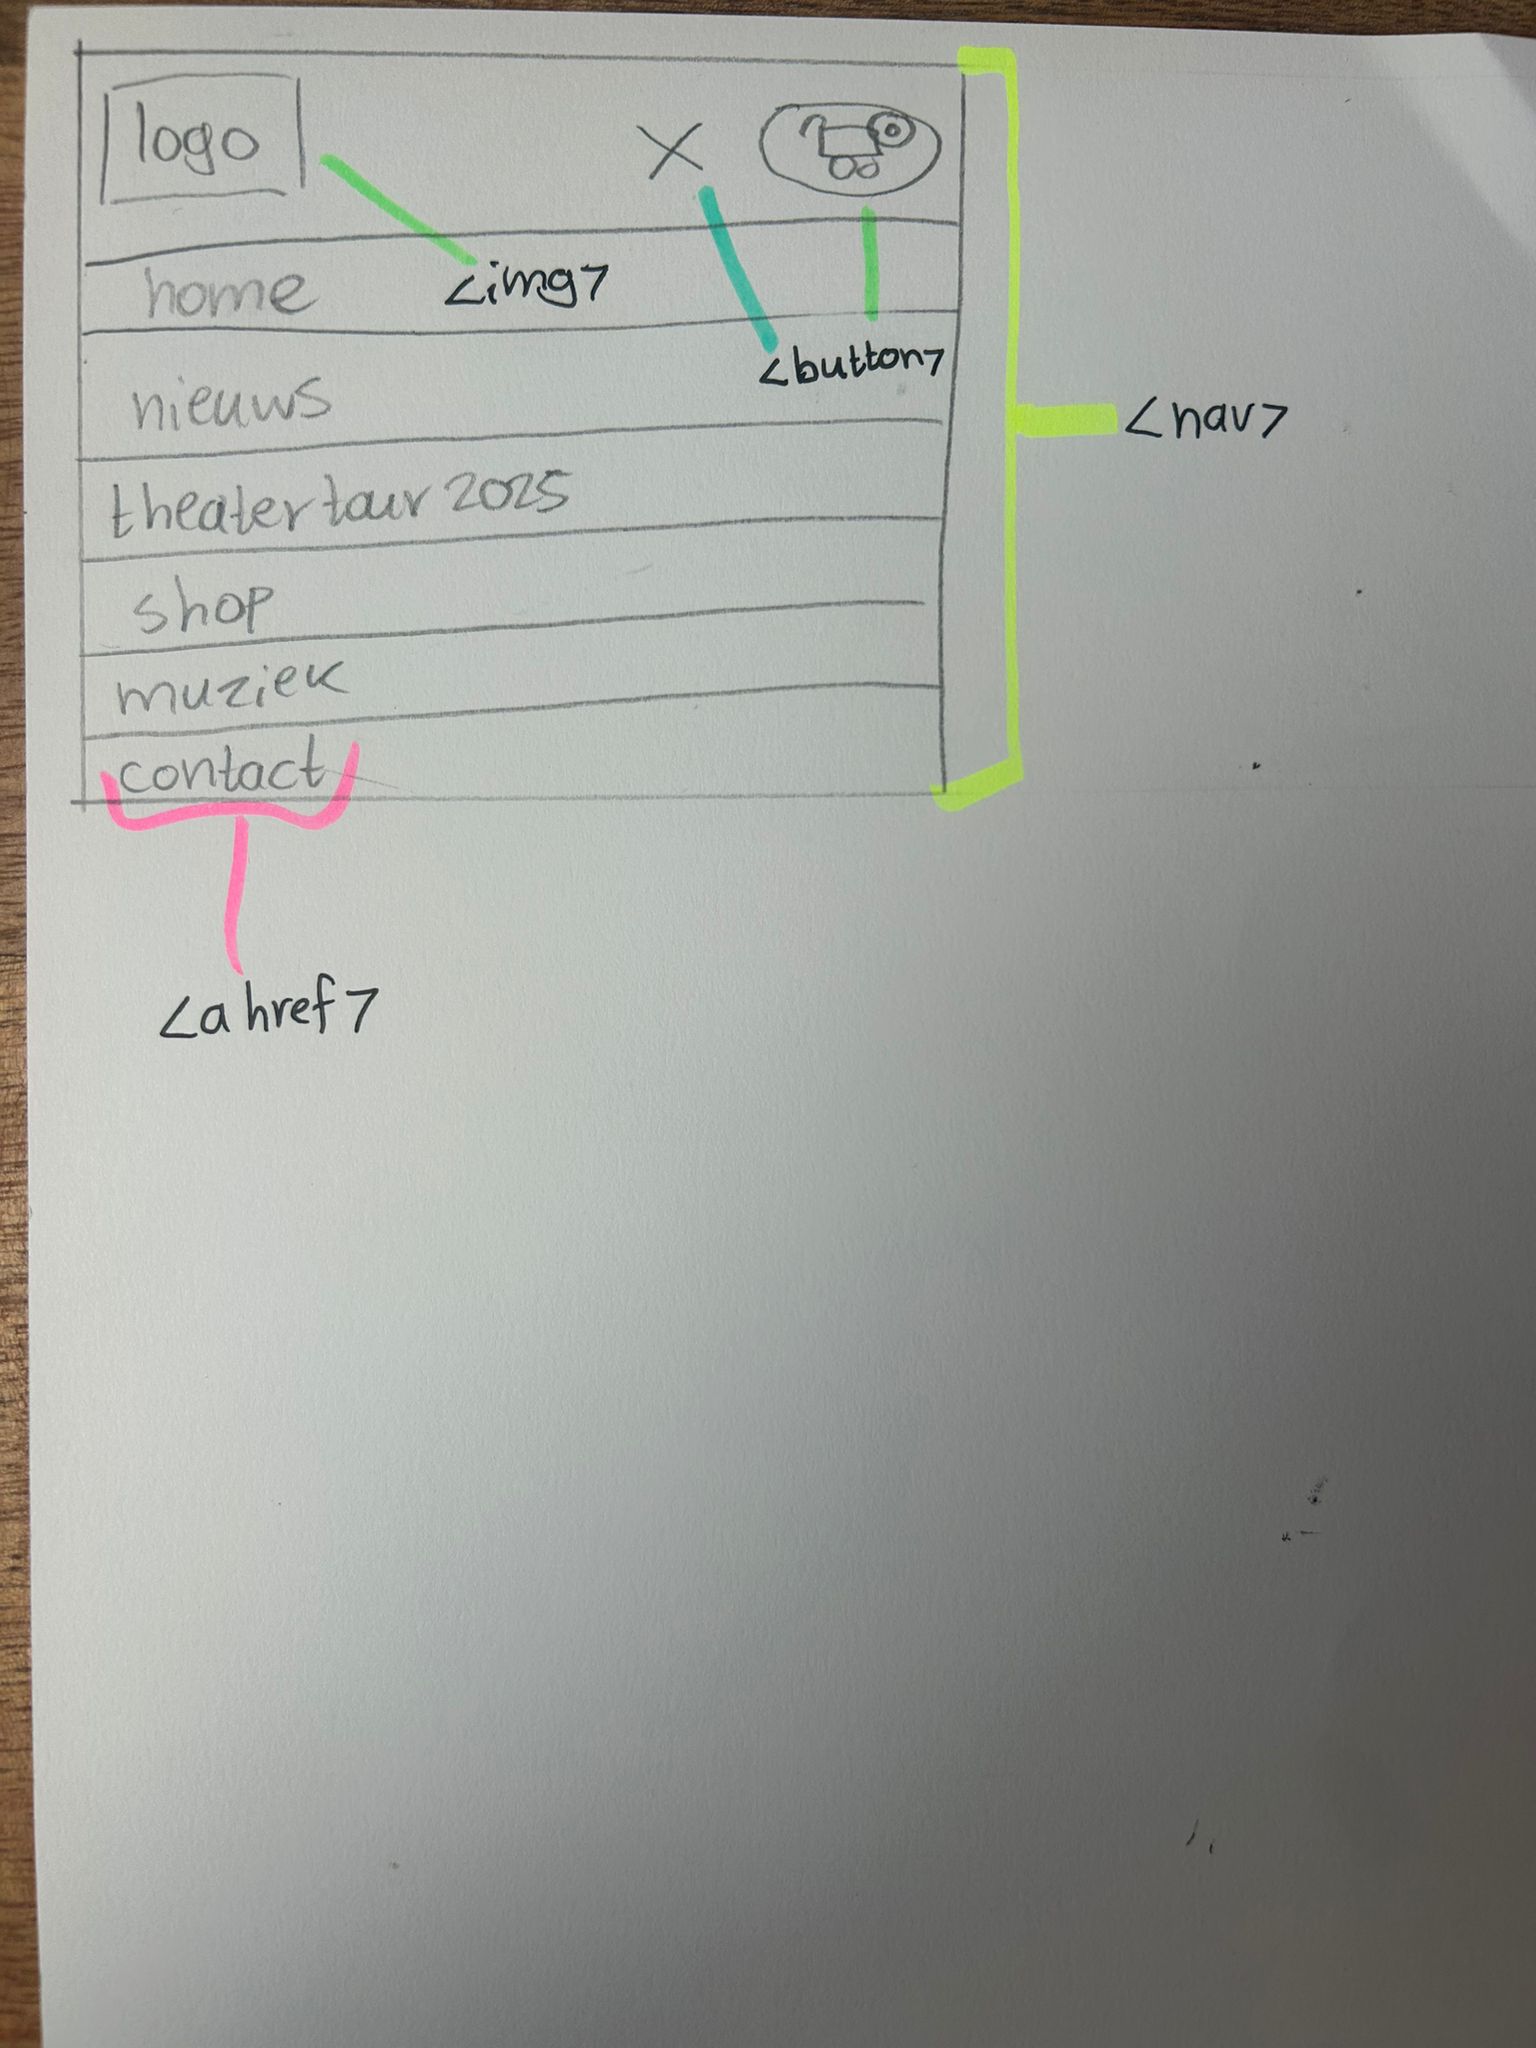 logo
X
home
<img>
<button>
nieuws
<nav>
theatertour 2025
shop
muziek
contact
<a href>